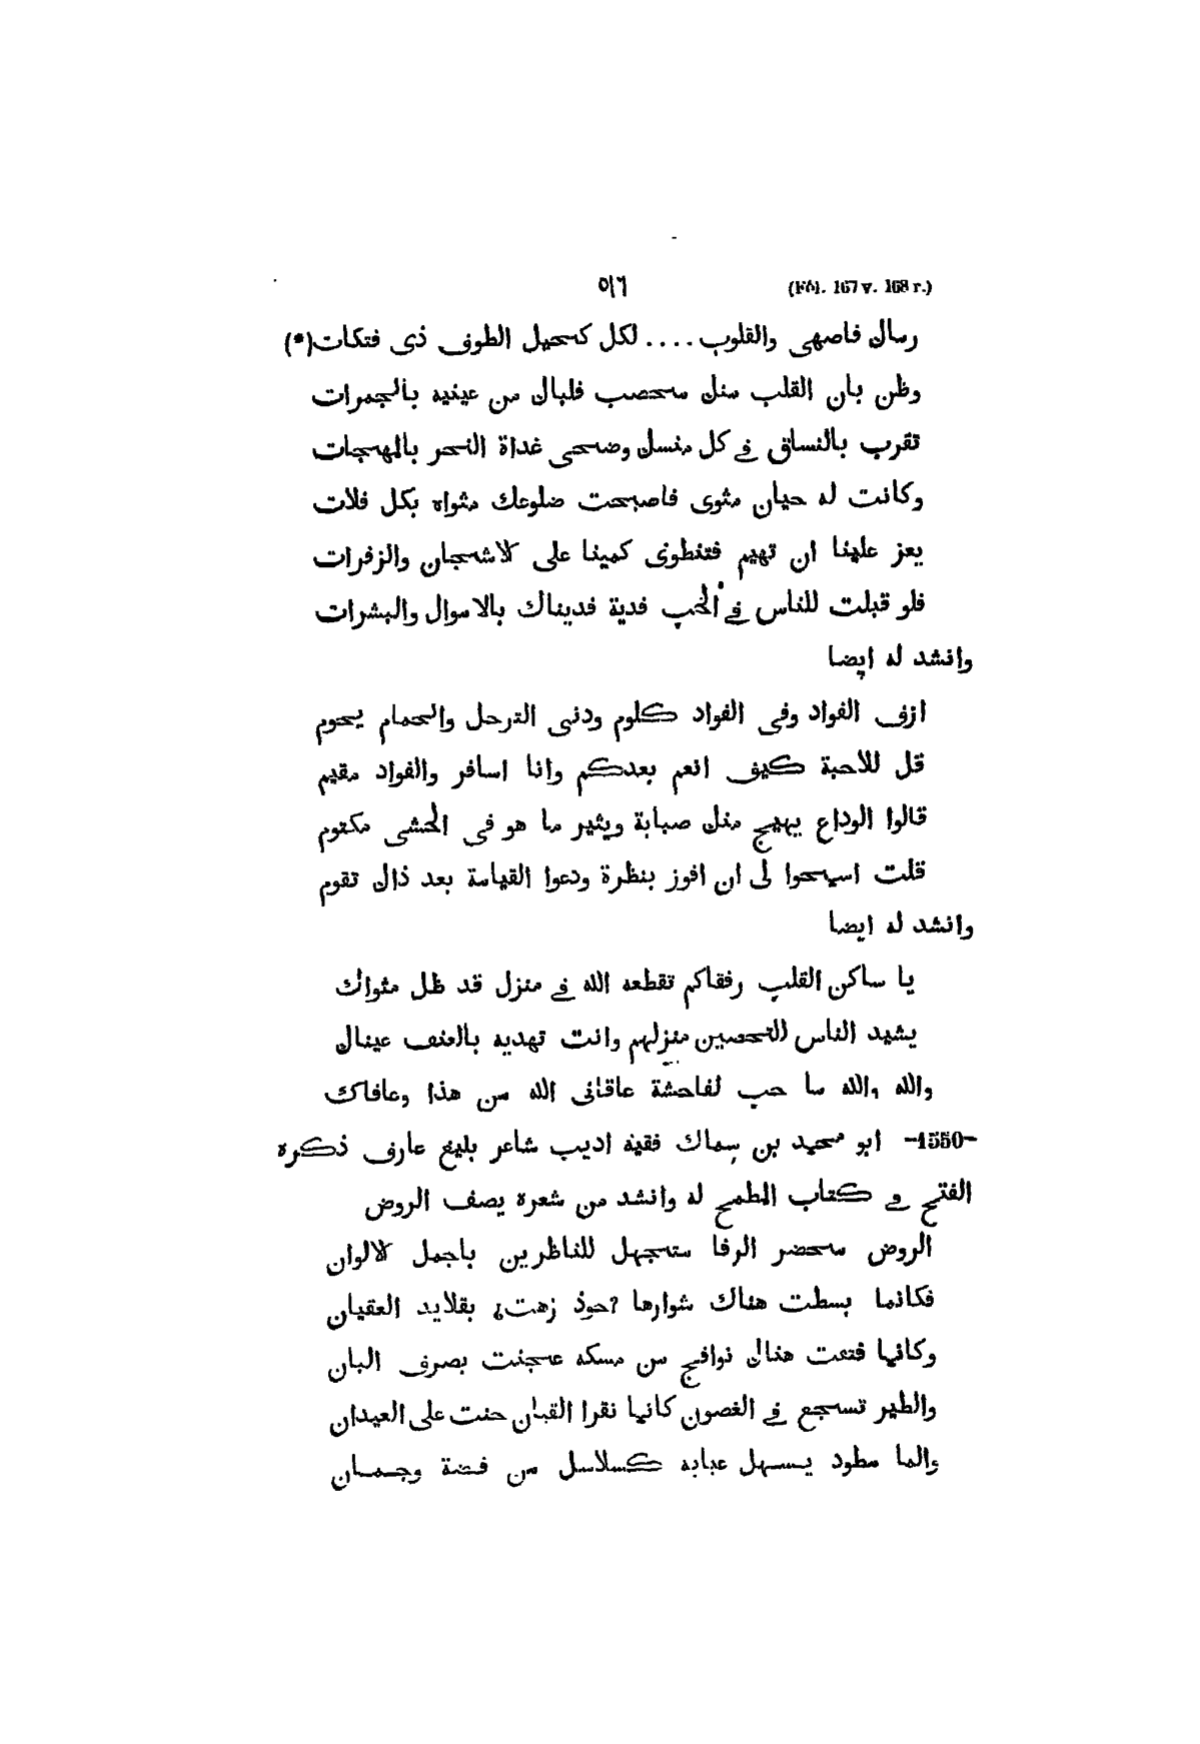 (Fol. 167 v. 168 r.) ٥١٦
رسال فاصهى والقلوب .... لكل كحيل الطوف ذى فتكات(*)
وظن بان القلب منك محصب فلبال من عينيه بالجمرات
تقرب بالنساك في كل منسك وضحى غداة النحر بالمهجات
وكانت له حيان مثوى فاصبحت ضلوعك مثواه بكل فلات
يعز علينا ان تهيم فتنطوى كمينا على الاشجان والزفرات
فلو قبلت للناس في الحب فدية فديناك بالاموال والبشرات
وانشد له ايضا
ازف الفواد وفى الفواد كلوم ودنى الترحل والحمام يحوم
قل للاحبة كيف انعم بعدكم وانا اسافر والفواد مقيم
قالوا الوداع يهيج منك صبابة ويثير ما هو فى الحشى مكتوم
قلت اسمحوا لى ان افوز بنظرة ودعوا القيامة بعد ذاك تقوم
وانشد له ايضا
يا ساكن القلب رفقاكم تقطعه الله في منزل قد ظل مثواك
يشيد الناس للتحصين منزلهم وانت تهديه بالعنف عيناك
والله والله ما حب لفاحشة عافانى الله من هذا وعافاك
-1550- ابو محمد بن سماك فقيه اديب شاعر بليغ عارف ذكره
الفتح في كتاب المطمح له وانشد من شعره يصف الروض
الروض محضر الرفا متجهل للناظرين باجمل الالوان
فكانما بسطت هناك شوارها ?حوذ زهت¿ بقلايد العقيان
وكانها فتحت هناك نوافج من مسكه عجنت بصرف البان
والطير تسجع في الغصون كانها نقرا القيان حنت على العيدان
والما مطود يسهل عبابه كسلاسل من فضة وجمان